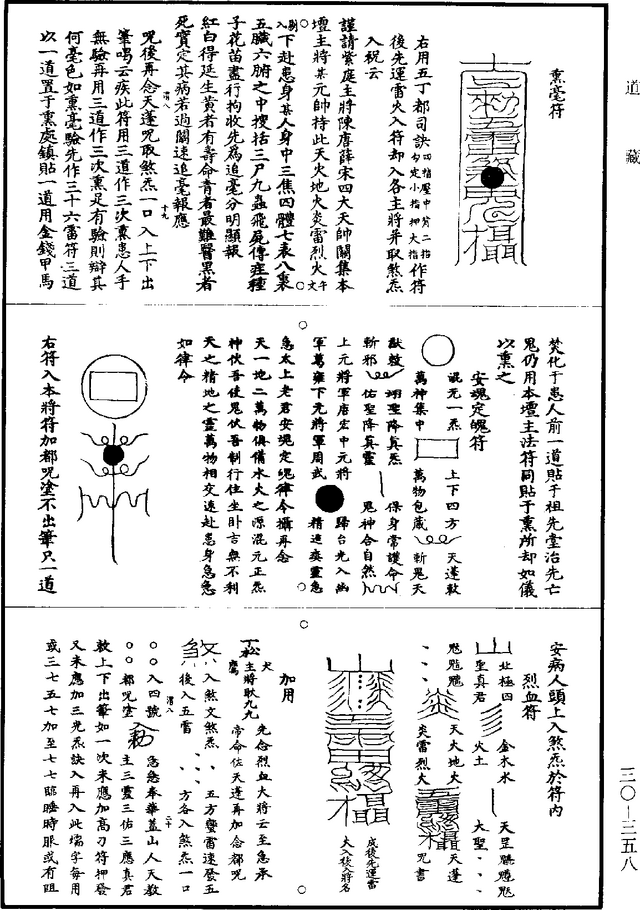 道藏
三〇—三五八
熏毫符
右用五丁都司訣四指屈中節二指勾定小指押大指作符
後先運雷火入符却入各主將并取煞炁
入秘云
謹請紫庭主將陳唐薛宋四大天帥關集本
壇主將某元帥持此天火地火炎雷烈火
下赴患身某人身中三焦四體七表八裏
五臟六腑之中搜括三尸九蟲飛屍傳疰種
子花苗盡行拘收先為追毫分明顯報
紅白得延生黃者有壽命青者最難醫黑者
死實定其病若過關速追毫報應
咒後再念天蓬咒取煞炁一口入上下出
筆喝云疾此符用三道作三次熏患人手
無驗再用三道作三次熏足有驗則辯其
何毫色如熏毫驗先作三十六雷符三道
以一道置于熏處鎮貼一道用金錢甲馬
焚化于患人前一道貼于祖先堂治先亡
鬼仍用本壇主法符同貼于熏所却如儀
以熏之
安魂定魄符
混元一炁
上下四方
天蓬敕
萬神集中
萬物包藏
斬鬼天
猷敕
翊聖降真炁
保身常護命
斬邪
佑聖降真靈
鬼神合自然
上元將軍唐宏中元將
歸台光入幽
軍葛雍下元將軍周武
精進爽靈急
急太上老君安魂定魄律令攝再念
天一地二萬物俱備水火之源混元正炁
神伏吾使鬼伏吾制行住坐卧言無不利
天之精地之靈萬物相交速赴患身急急
如律令
右符入本將符加都咒塗不出筆只一道
安病人頭上入煞炁於符內
烈血符
北極四
金木水
聖真君
火土
大聖
天火地火
天蓬
炎雷烈火
咒書
成後先運雷
火入後入將名
加用
先念烈血大將云至急承
主將耿九九
帝命佐天蓬再加念都咒
入煞文煞炁
五方蠻雷速發五
後入五雷
方各入煞炁一口
入四號
急急奉華蓋山人天教
都咒塗
主三靈三佑三應真君
敕上下出筆如一次未應加高刃符押發
又未應加三光炁訣入再入此壋字每用
或三七五七加至七七臨睡時服或有阻